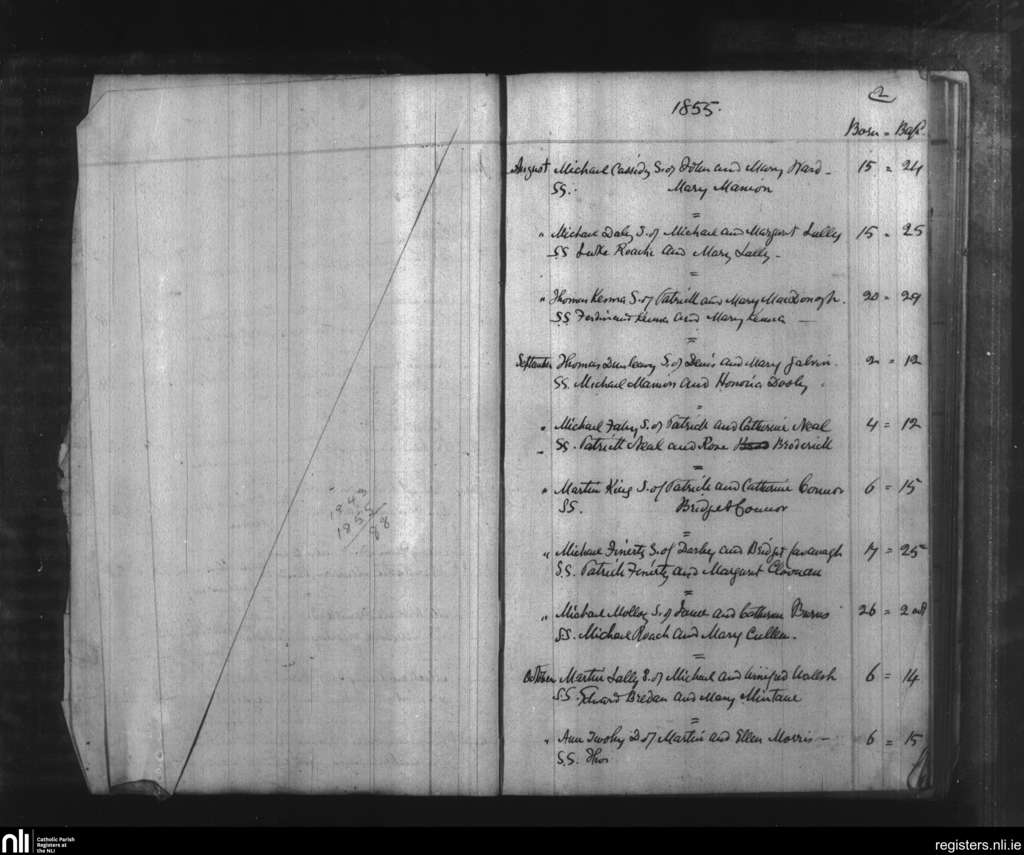 1843
1855
88
2
1855.
Born = Bap.
August Michael Cassidy S. of John and Mary Ward - 15 = 24
SS. Mary Manion
" Michael Daly S. of Michael and Margaret Lally 15 = 25
SS Luke Roache and Mary Lally -
" Thomas Kenna S. of Patrick and Mary MacDonogh. 20 = 29
SS Ferdinand Kenna and Mary Kenna —
September Thomas Dunleavy S. of Denis and Mary Galvin. 2 = 12
SS. Michael Manion and Honoria Dooly
" Michael Fahy S. of Patrick and Catherine Neal 4 = 12
" SS. Patrick Neal and Rose Broderick
" Martin King S. of Patrick and Catherine Connor 6 = 15
SS. Bridget Connor
" Michael Finerty S. of Darby and Bridget Cavanagh 17 = 25
S.S. Patrick Finerty and Margaret
" Michael Molloy S. of James and Catherine Burns 26 = 2
SS. Michael Roach and Mary Cullen.
October Martin Lally S. of Michael and Winifred Walsh 6 = 14
S.S. Edward and Mary
" Ann Twohy D. of Martin and Ellen Morris — 6 = 15
S.S. Thos
nli
Catholic Parish
Registers at
the NLI
registers.nli.ie